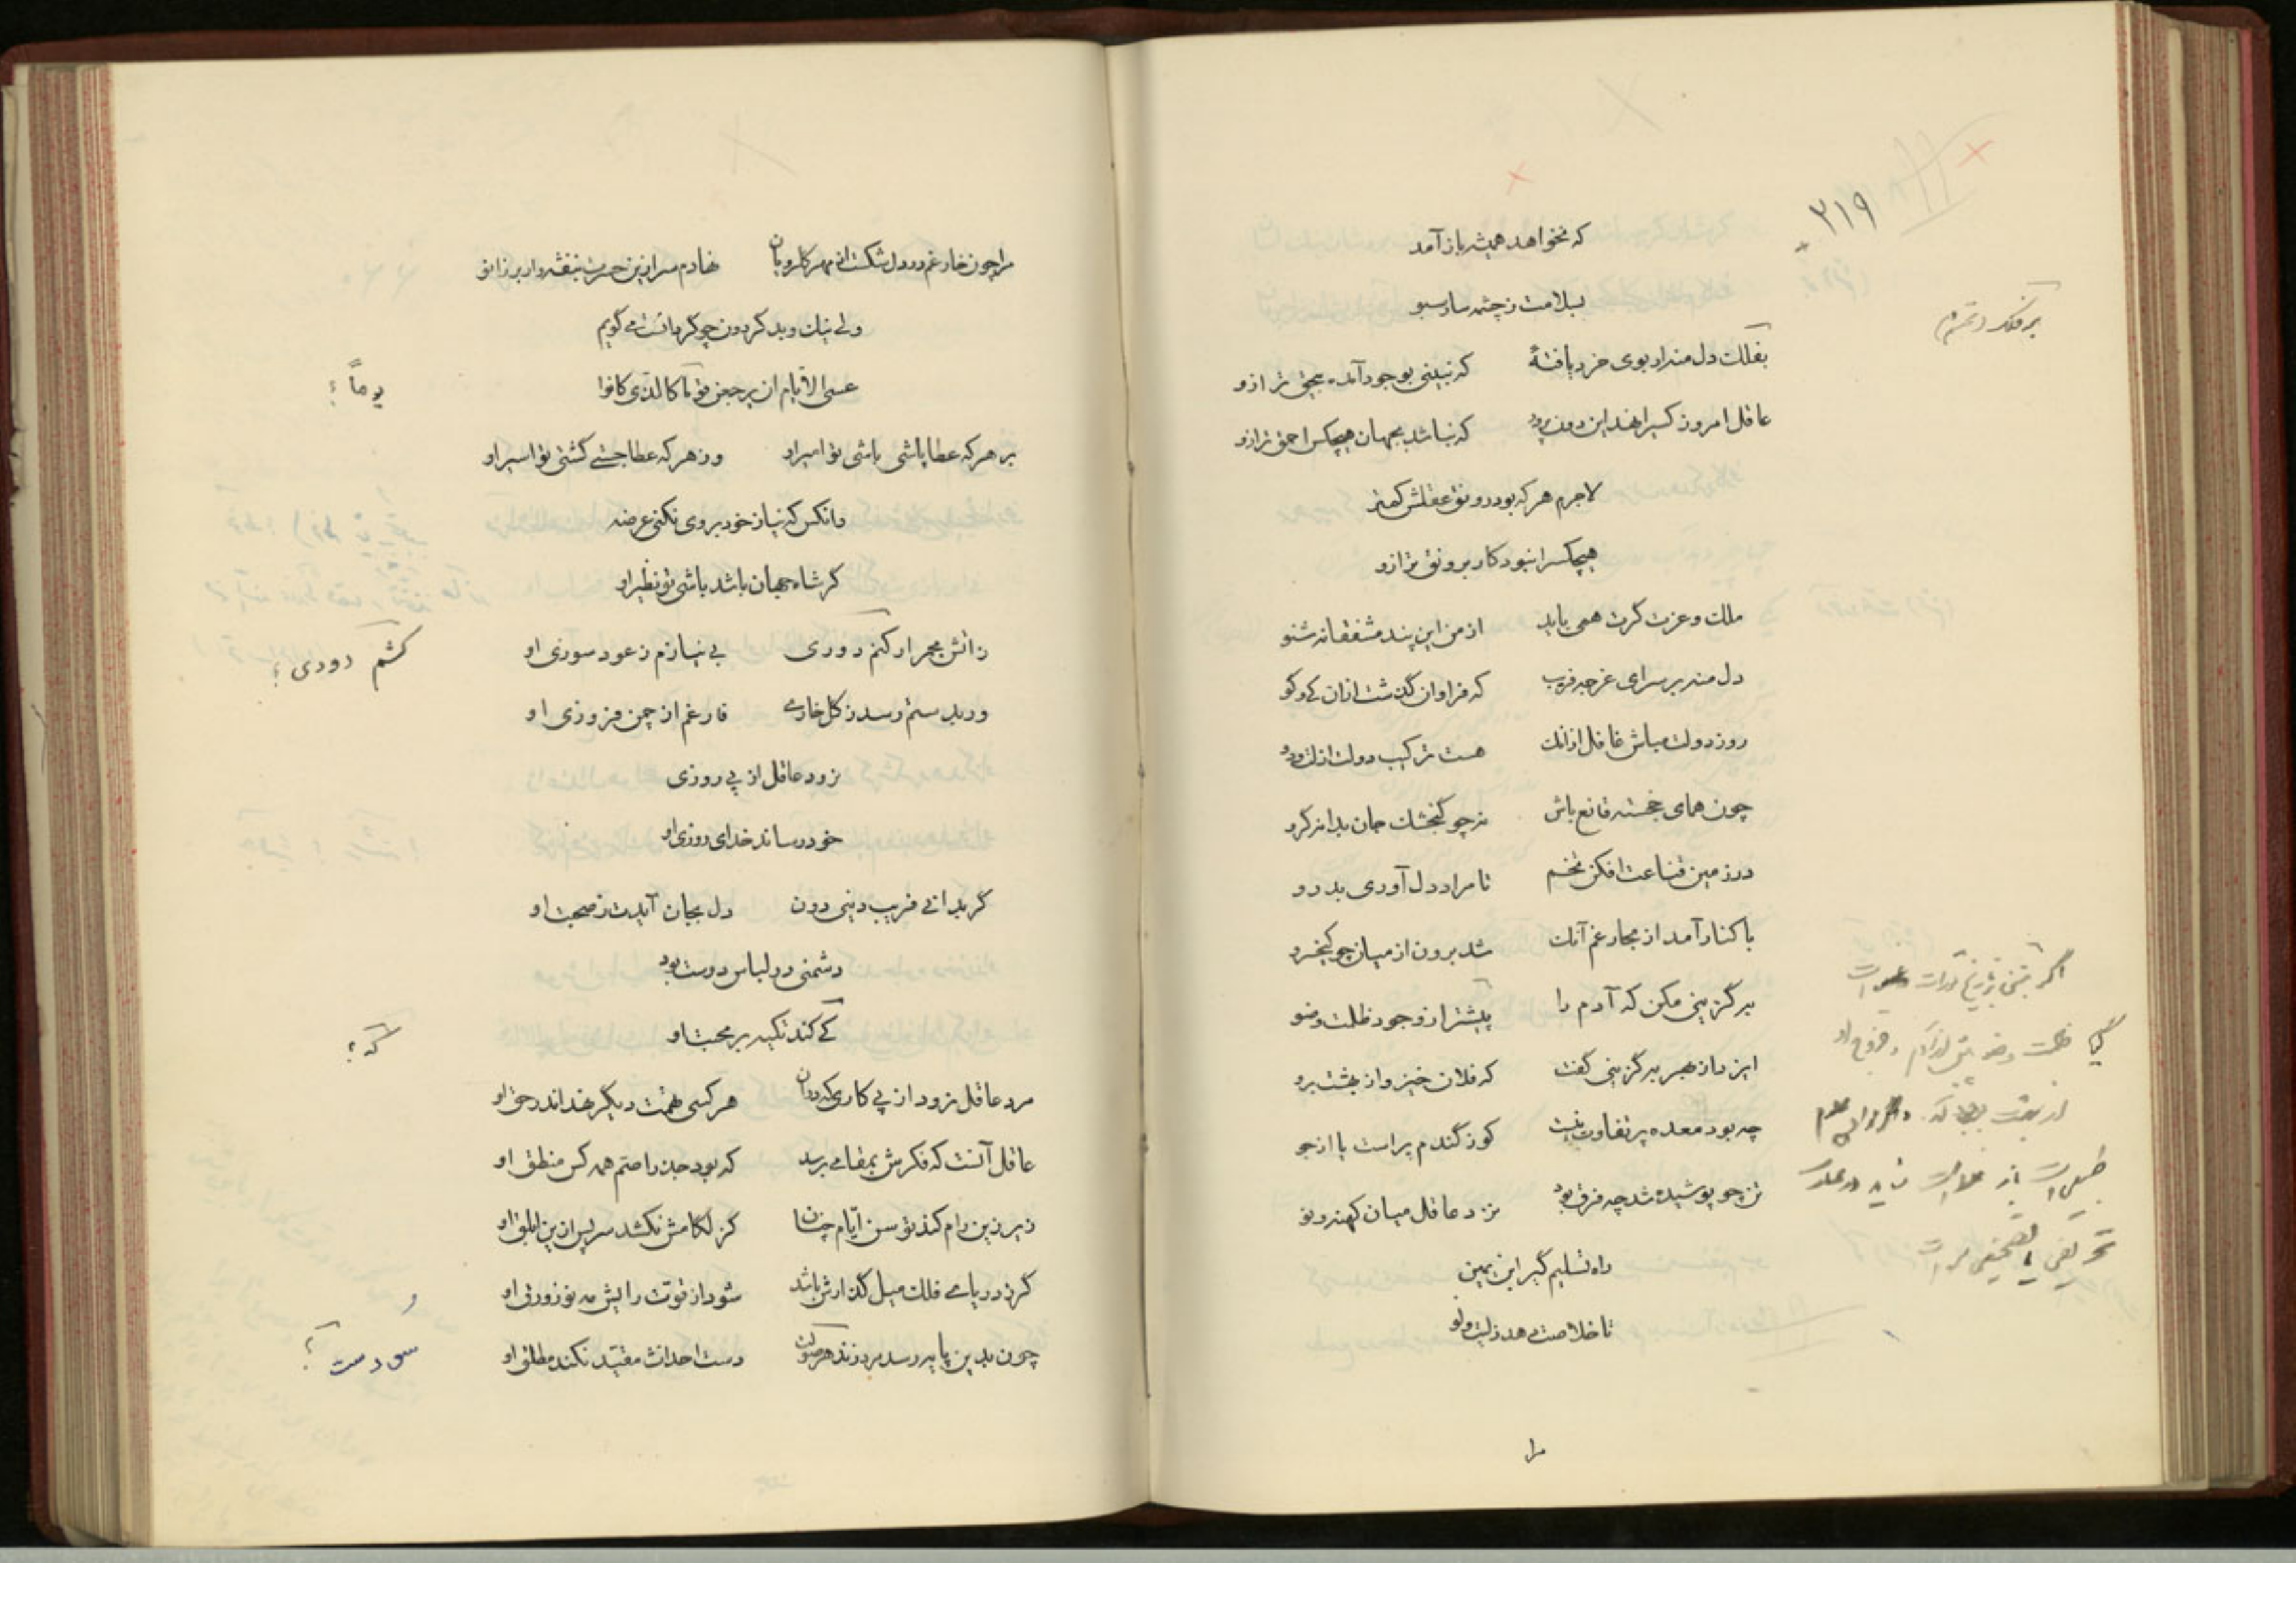 ۲۱۹
که نخواهد همیشه باز آمد
بسلامت ز چشمه سار سبو
بفلک دل منه ار بوی خرد یافتهٔ که نبینی بوجود آمده بیحق تر ازو
عاقل امروز کسیرا نهد این دون پرور که نباشد بجهان هیچکس احمق تر ازو
لاجرم هر که بود رونق عقلش کمتر
هیچکسرا نبود کار برونق تر ازو
ملک و عزت گرت همی باید از من این پند مشفقانه شنو
دل منه بر سرای غرچه فریب که فراوان گذشت ازان کی و کو
روز دولت مباش غافل ازانک هست ترکیب دولت از لت و دو
چون همای خجسته قانع باش نه چو گنجشک جان بدانه گرو
در زمین قناعت افکن تخم تا مراد دل آوری بدرو
با کنار آمد از بحار غم آنک شد برون از میان چو کیخسرو
برگزینی مکن که آدم را پیشتر از وجود ظلمت و ضو
ایزد از بهر برگزینی گفت که فلان خیز و از بهشت برو
چه بود معده پر تفاوت نیست کو ز گندم پر است یا از جو
تن چو پوشیده شد چه فرق بود نزد عاقل میان کهنه و نو
راه تسلیم گیر ابن یمین
تا خلاصت دهد ز لیت و لو
را
مرا چون خار غم در دل شکست آن مهر گلرویان نهادم سر ازین حسرت بنفشه وار بر زانو
ولی نیک و بد گردون چو گردانست می گویم
عسی الأیام ان یرجعن قوماً کالذی کانوا
یوماً ؟
بر هر که عطا پاشی باشی تو امیر او وز هر که عطا جستی گشتی تو اسیر او
وانکس که نیاز خود بروی نکنی عرضه
گر شاه جهان باشد باشی تو نظیر او
ز آتش مجمر ار کنم دوری بی نیازم ز عود سوزی او
کشم دودی ؟
ور بد ستم رسد ز گل خاری فارغم از چمن فروزی او
نرود عاقل از پی روزی
خود رساند خدای روزی او
گر بدانی فریب دنیی دون دل بجان آیدت ز صحبت او
دشمنی در لباس دوست بود
کی کند تکیه بر محبت او
که ؟
مرد عاقل نرود از پی کاری که دران هر کسی تهمت دیگر نهد اندر حق او
عاقل آنست که فکرش بمقامی برسد که بود جذر اصم همه کس منطق او
زیر زین رام کند توسن ایام چنان کز لگامش نکشد سر پس ازین ابلق او
گر ز دریای فلک میل گذارش باشد شود از قوت رایش مه نو زورق او
چون بدین پایه رسد مرد زند هر صوتی دست احداث مقید نکند مطلق او